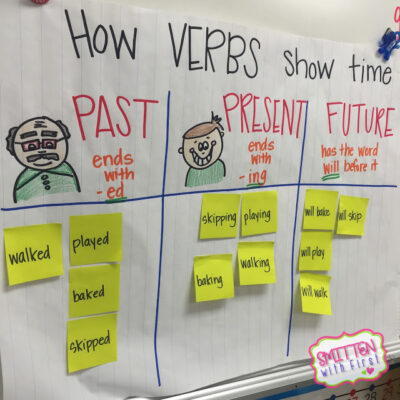 How VERBS show time
PAST
ends
with
- ed
PRESENT
ends
with
- ing
FUTURE
has the word
will before it
walked
played
baked
skipped
skipping
playing
baking
walking
will bake
will skip
will play
will walk
SMITTEN
with First